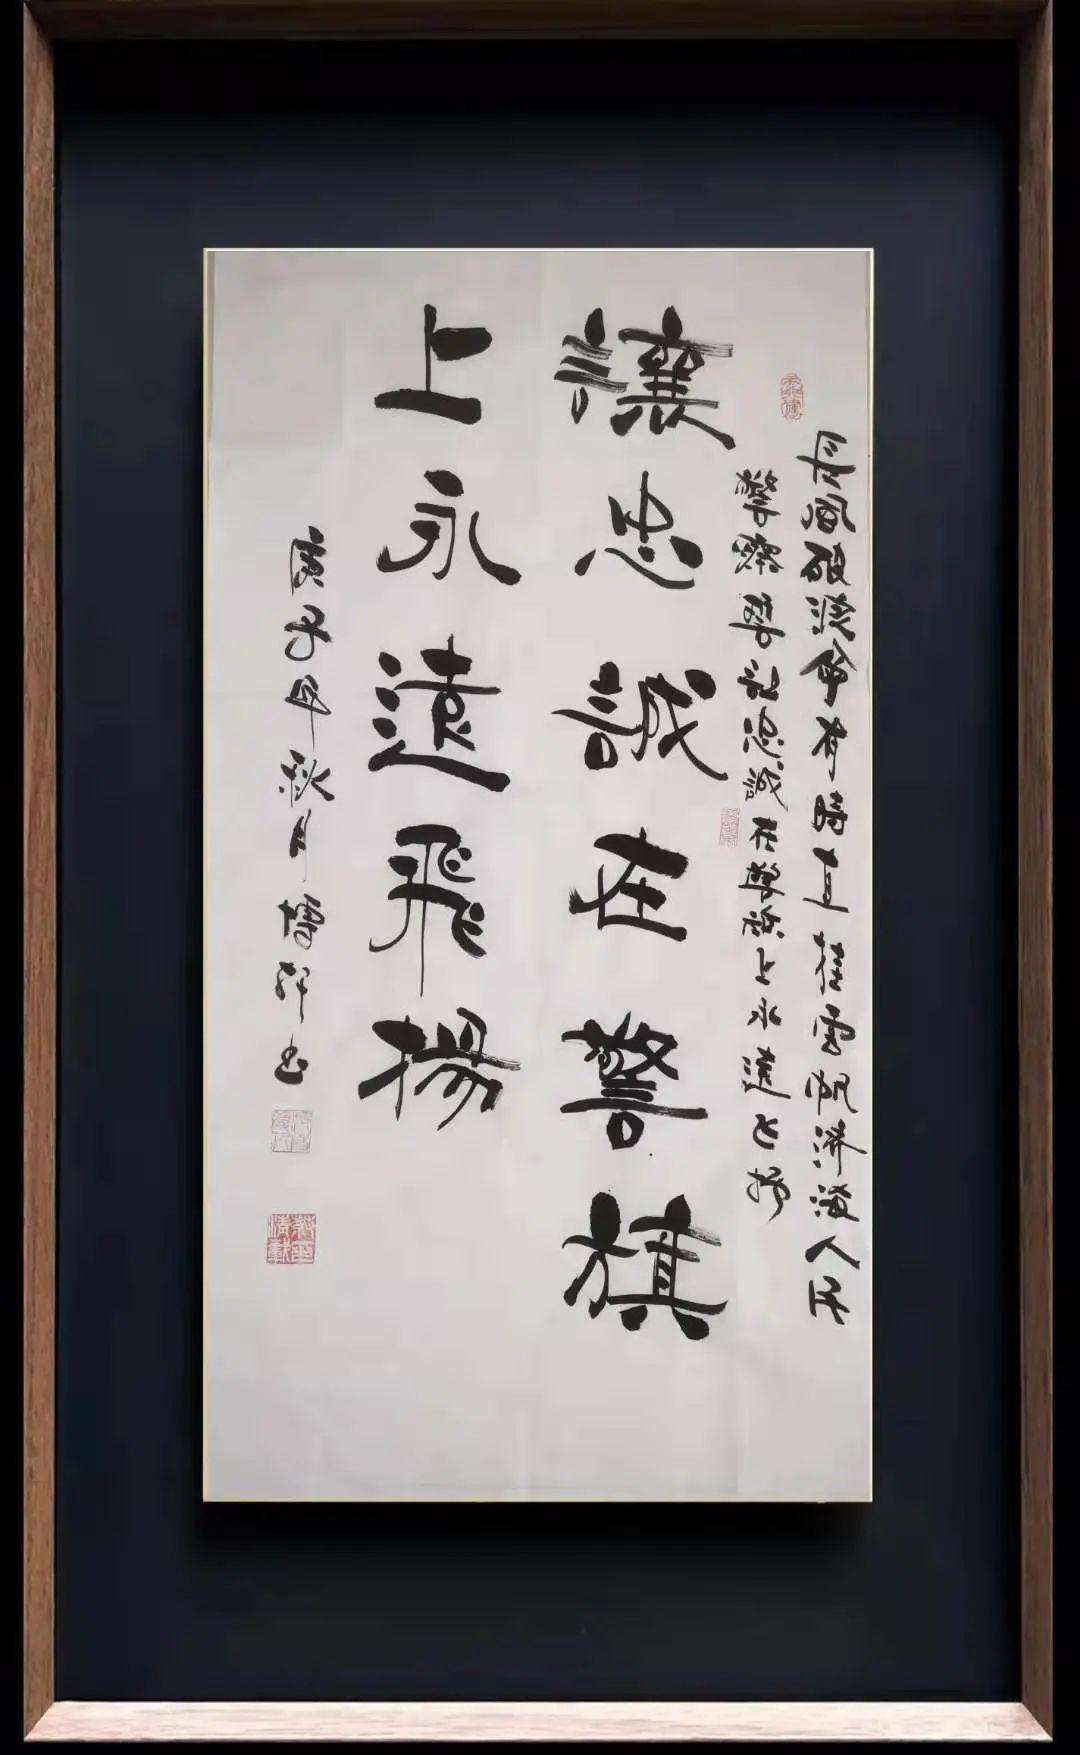 長風破浪會有時直挂雲帆濟海人民
警察誓让忠誠在警旗上永遠飞揚
讓忠誠在警旗
上永遠飛揚
庚子年秋月书